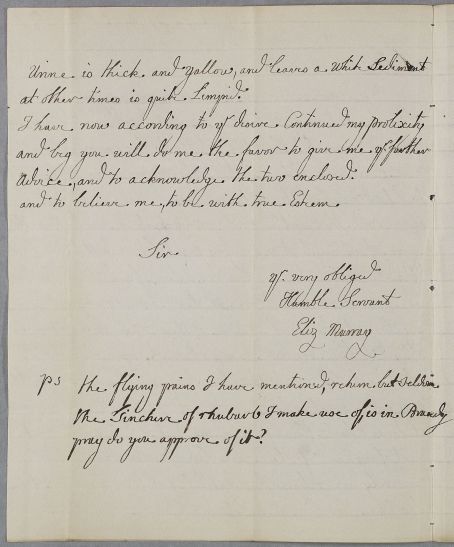 Urine is thick and yallow, and leaves a White Sediment
at other times is quite Limpid.
I have now according to yr desire Continued my prolixity
and beg you will do me the favor to give me yr further
advice, and to acknowledge the two enclosed.
and to believe me, to be with true Esteem
Sir
yr very obliged
Humble Servant
Eliz Murray
Ps the flying pains I have mentioned, return but seldom
the Tincture of rhubarb I make use of, is in Brandy
pray do you approve of it?